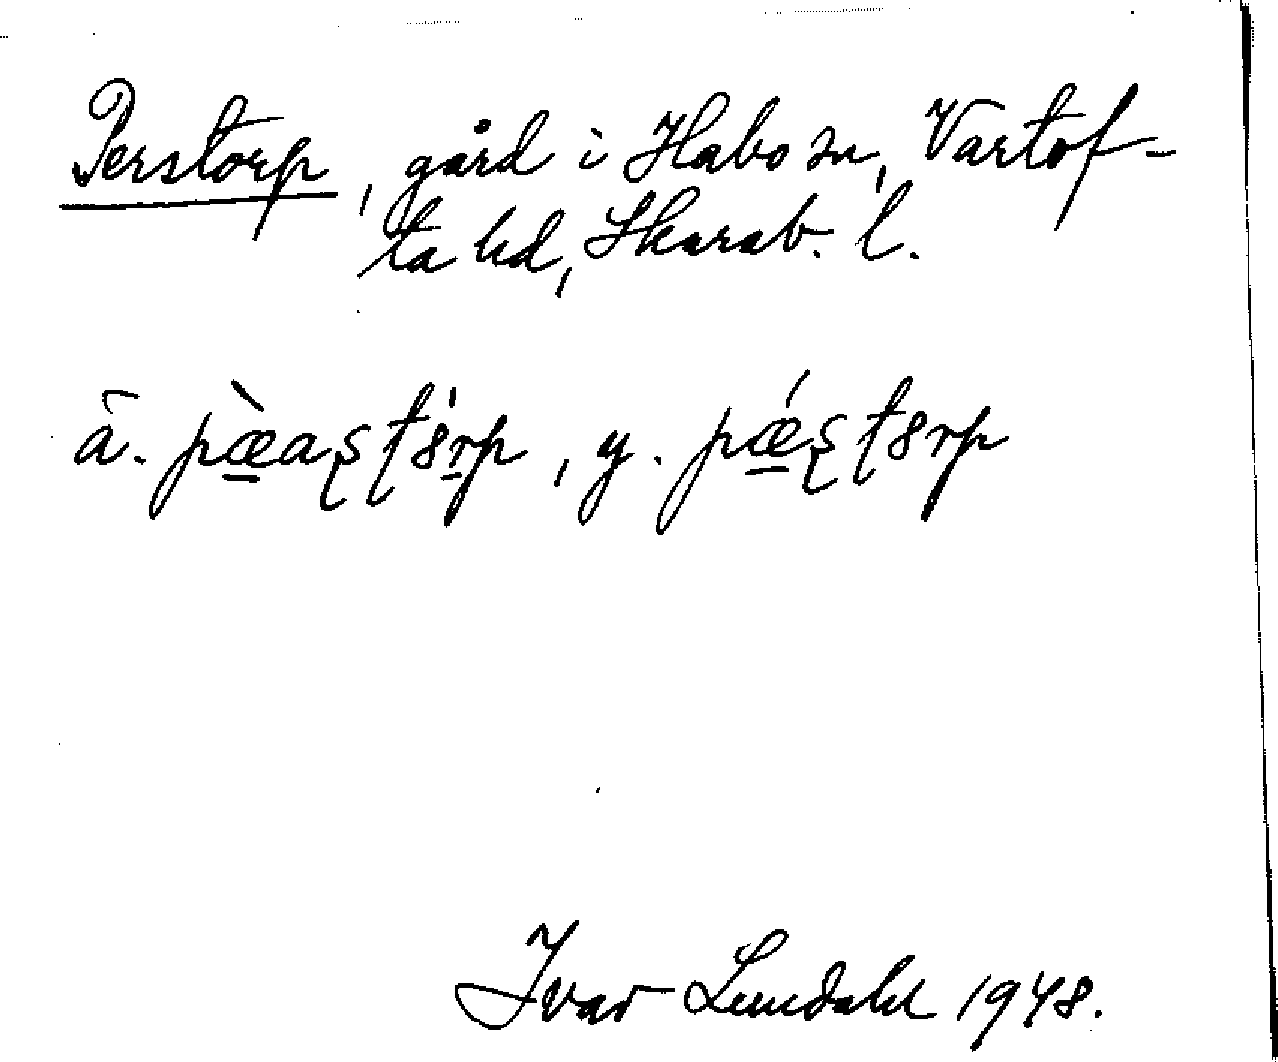 Perstorp, gård i Habo sn, Vartof-
ta hd, Skarab. l.
ä. pæ̲̀aʂʈ8̍r̲p, y. pǽ̲ʂʈ8rp
Ivar Lundahl 1948.